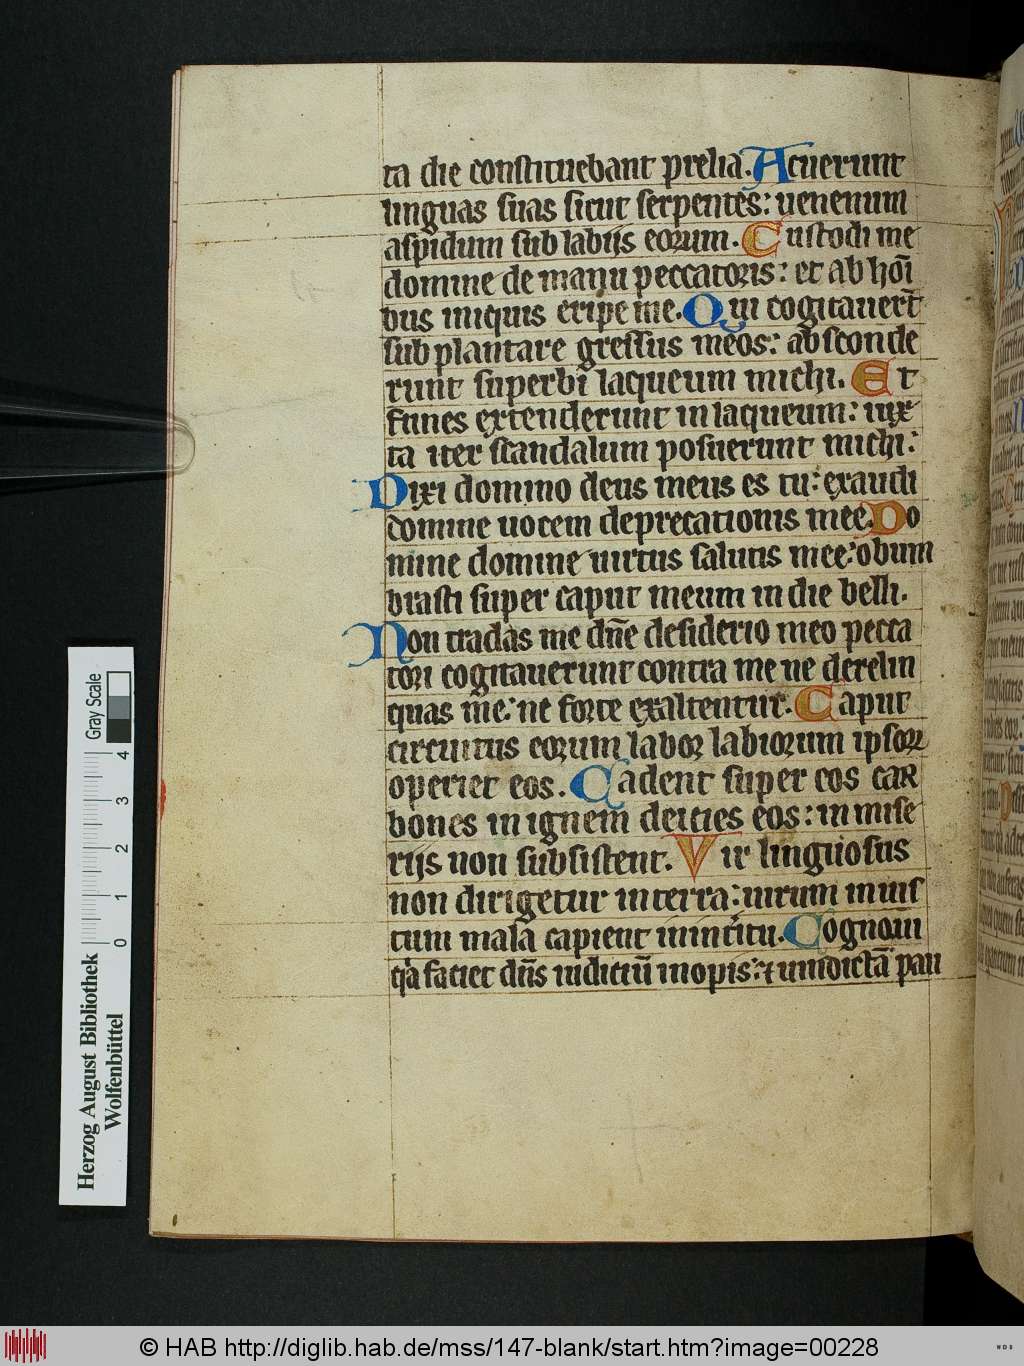 ta die constituebant prelia. Acuerunt
linguas suas sicut serpentes: uenenum
aspidum sub labijs eorum. Custodi me
domine de manu peccatoris: et ab hoī
bus iniquis eripe me. Qui cogitauert̄
subplantare gressus meos: absconde
runt superbi laqueum michi. Et
funes extenderunt in laqueum: iux
ta iter scandalum posuerunt michi:
Dixi domino deus meus es tu: exaudi
domine uocem deprecationis mee. Do
mine domine uirtus salutis mee: obum
brasti super caput meum in die belli.
Non tradas me dn̄e desiderio meo pecca
tori cogitauerunt contra me ne derelin
quas me: ne forte exaltentur. Caput
circuitus eorum labor labiorum ipsoꝝ
operiet eos. Cadent super eos car
bones in ignem deicies eos: in mise
rijs non subsistent. Vir linguosus
non dirigetur in terra: uirum inius
tum mala capient in int̄itu. Cognoui
q̄a faciet dn̄s iudiciū inopis: ⁊ uindictā pau
Herzog August Bibliothek
Wolfenbüttel
0 1 2 3 4
Gray Scale
© HAB http://diglib.hab.de/mss/147-blank/start.htm?image=00228